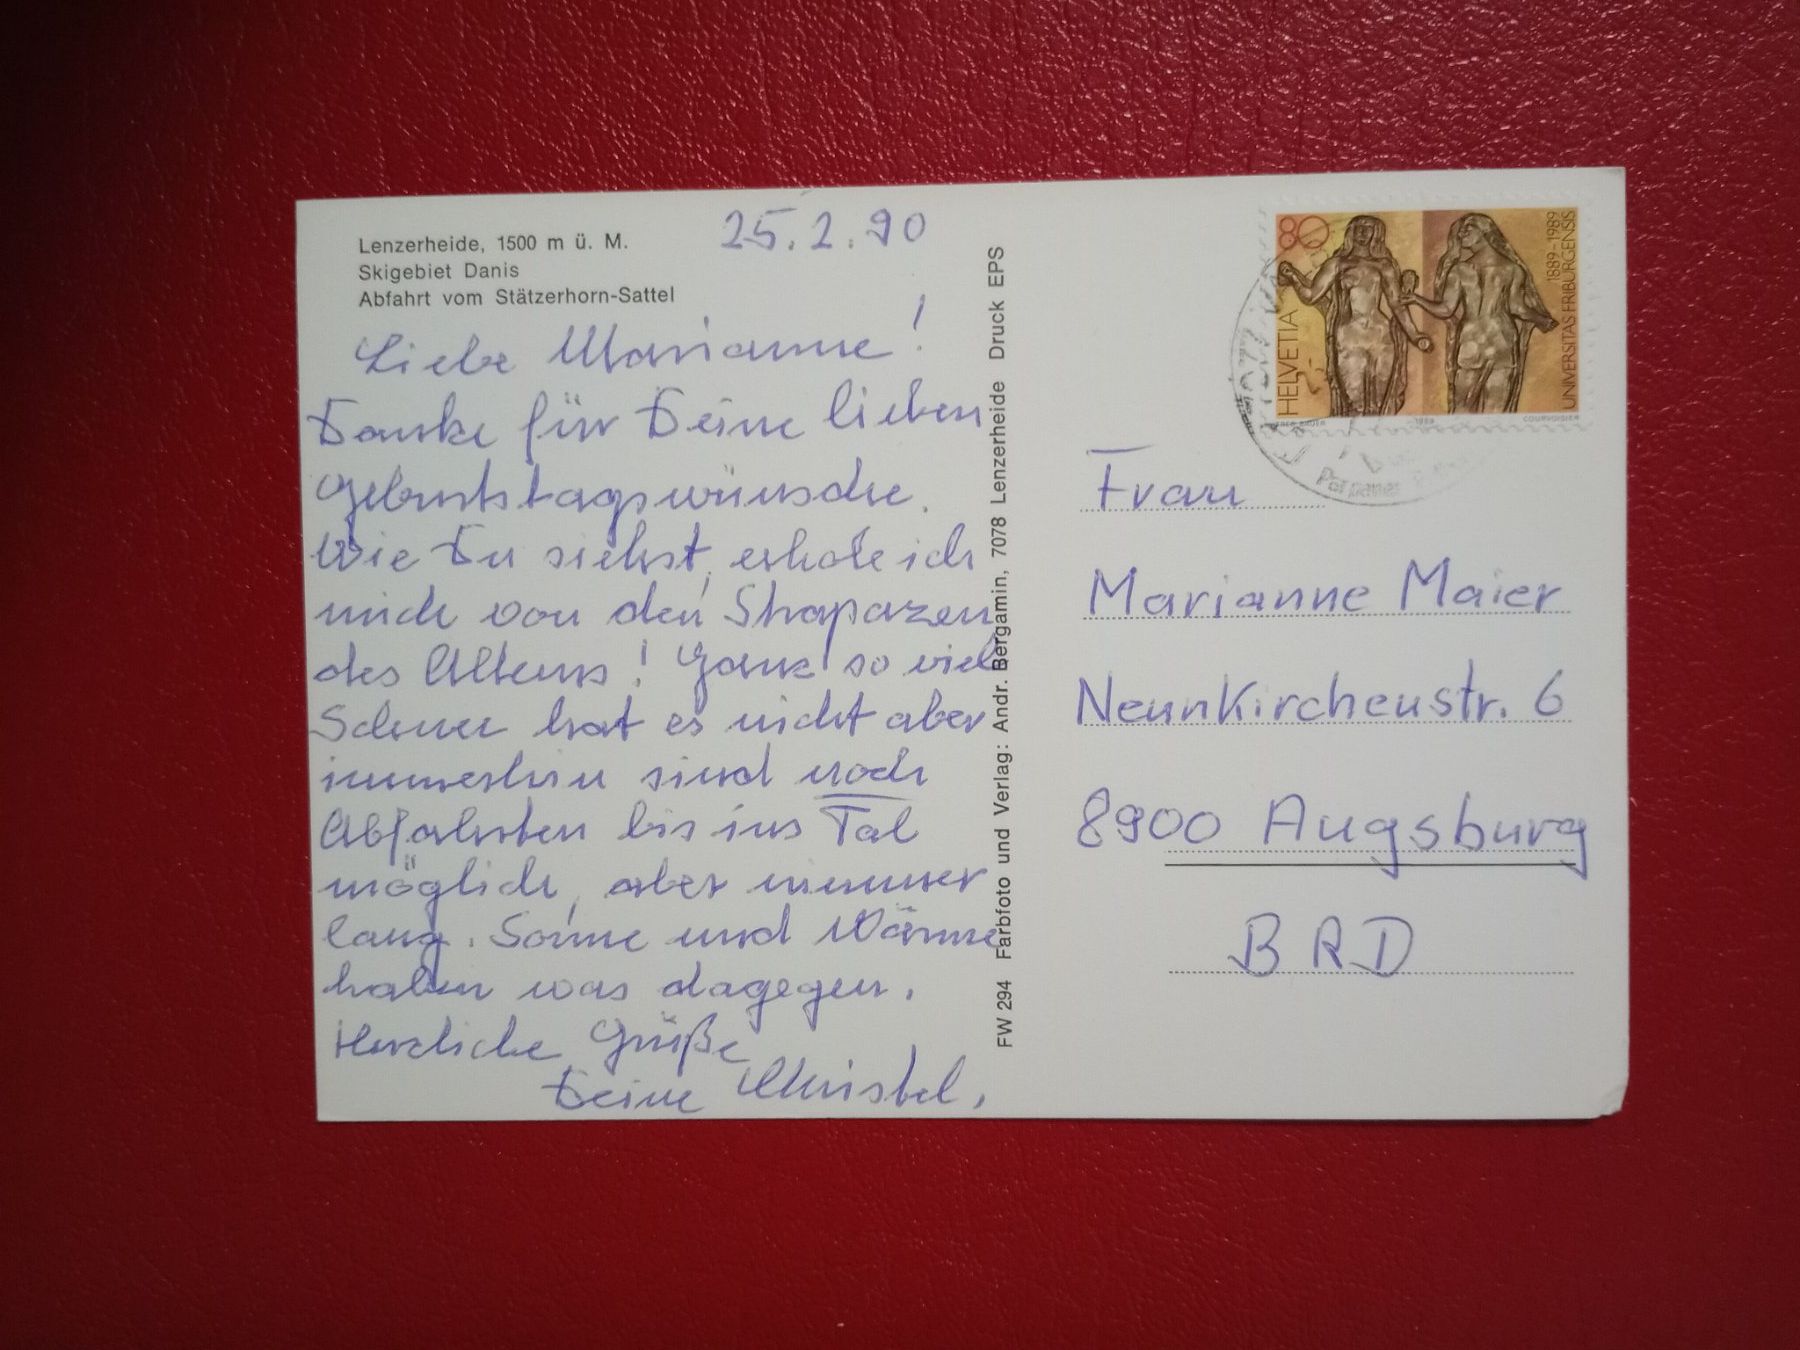 Lenzerheide, 1500 m ü. M.
Skigebiet Danis
Abfahrt vom Stätzerhorn-Sattel
25.2.90
Liebe Marianne!
Danke für Deine lieben
Geburtstagswünsche.
Wie Du siehst, erhole ich
mich von den Strapazen
des Alterns! Ganz so viel
Schnee hat es nicht aber
immerhin sind noch
Abfahrten bis ins Tal
möglich, aber nimmer
lang. Sonne und Wärme
haben was dagegen.
Herzliche Grüße
Deine Christel.
FW 294 Farbfoto und Verlag: Andr. Bergamin, 7078 Lenzerheide Druck EPS
80
HELVETIA
1889-1989
UNIVERSITAS FRIBURGENSIS
1989
COURVOISIER
Frau
Marianne Maier
Neunkirchenstr. 6
8900 Augsburg
BRD